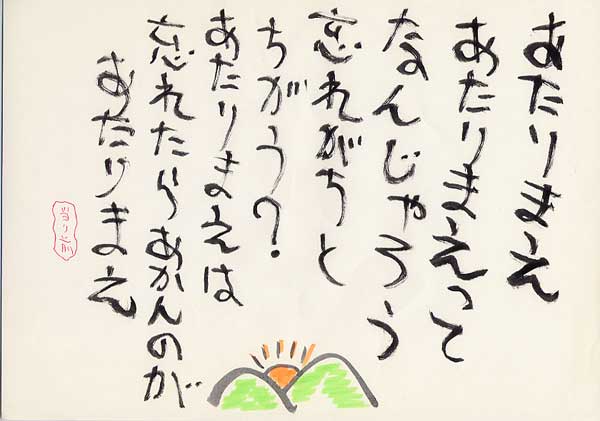 あたりまえ
あたりまえって
なんじゃろう
忘れがちと
ちがう?
あたりまえは
忘れたらあかんのが
あたりまえ
当り前